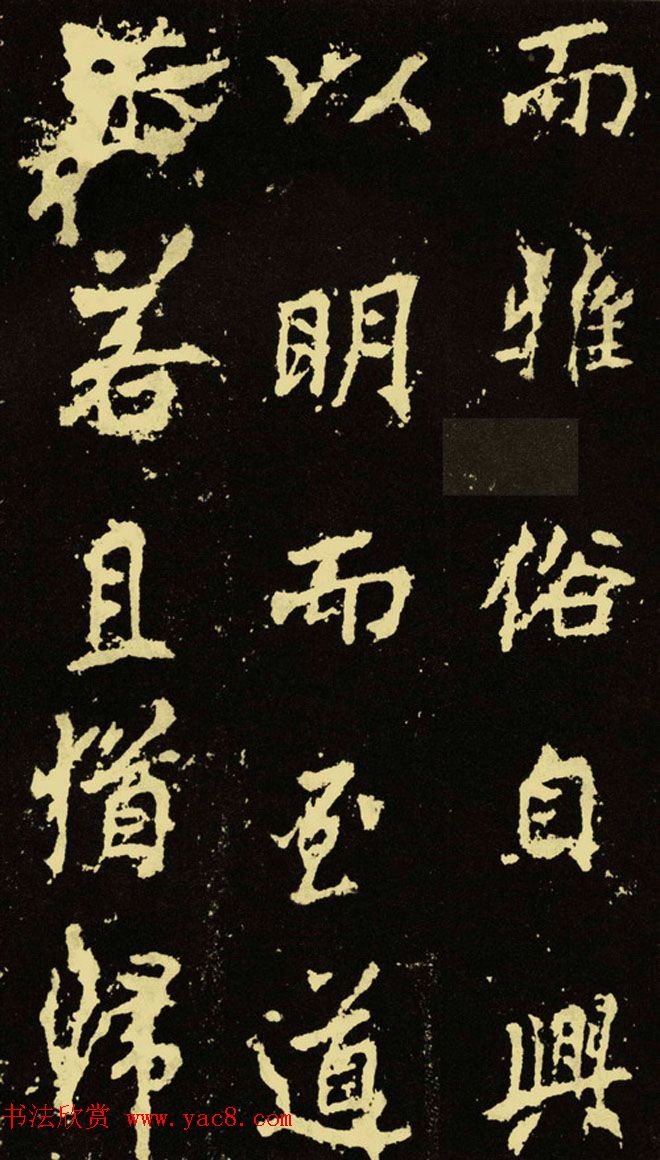 而雅俗自興
以明而至道
若且猶歸
书法欣赏 www.yac8.com